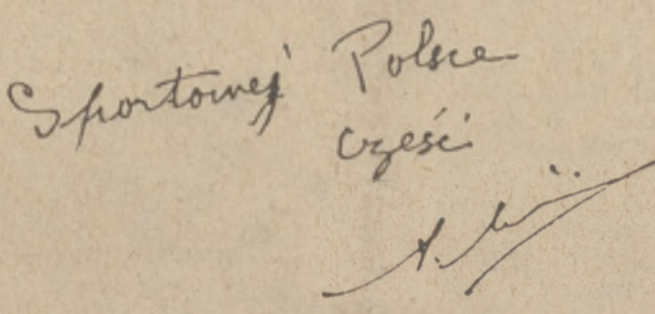 Sportowej Polsce
cześć